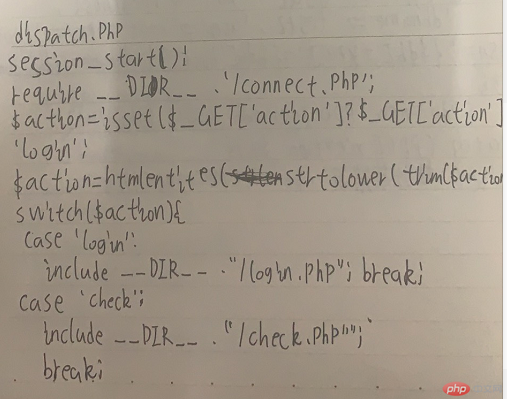 dispatch.PhP
session_start();
require __DIR__ .'/connect.PhP';
$action=isset($_GET['action']?$_GET['action']
'login';
$action=htmlentites(strtolower(trim($action
switch($action){
case 'login':
include __DIR__ ."/login.php"; break;
case 'check';
include __DIR__ ."/check.PhP"";
break;
php